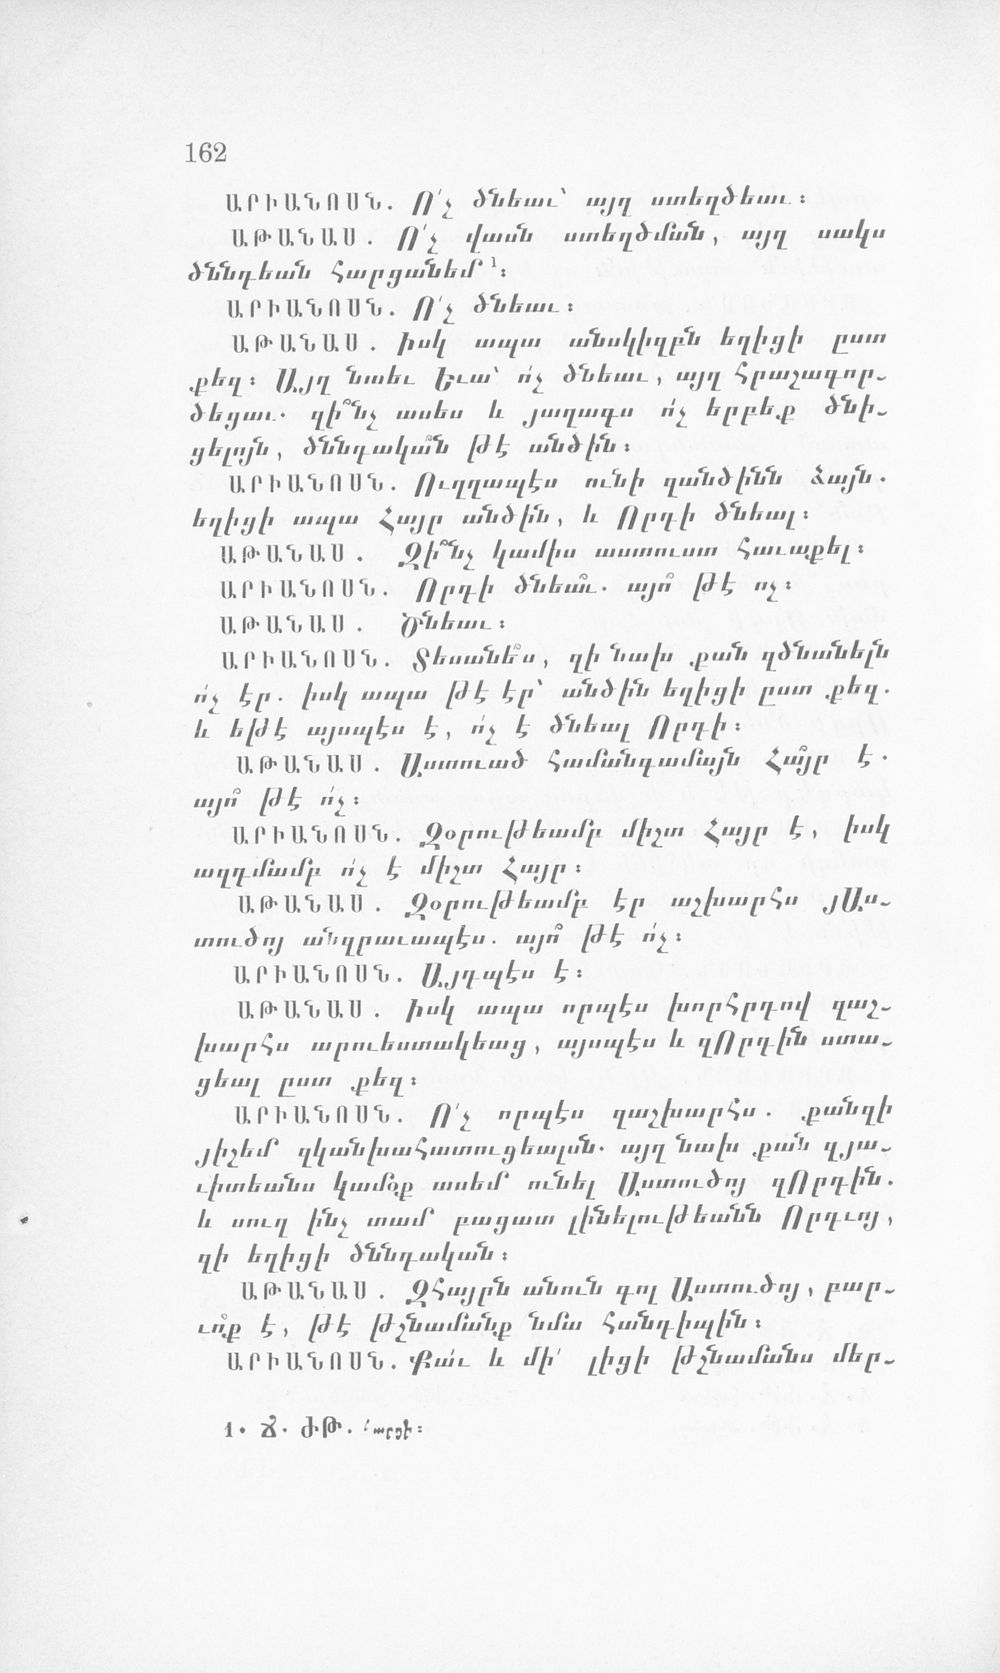 162
ԱՐԻԱՆՈՍՆ. Ո՛չ ծնեաւ՝ այղ ստեղծեաւ։
ԱԹԱՆԱՍ. Ո՛չ վասն ստեղծման, այղ սակս
ծննդեան հարցանեմ ¹։
ԱՐԻԱՆՈՍՆ. Ո՛չ ծնեաւ։
ԱԹԱՆԱՍ. Իսկ ապա անսկիզբն եղիցի ըստ
քեզ։ Այղ նաեւ Եւա՝ ո՛չ ծնեաւ, այղ հրաշագոր֊
ծեցաւ. զի՞նչ ասես և յաղագս ո՛չ երբեք ծնի֊
ցելոյն, ծննդակա՞ն թէ անծին։
ԱՐԻԱՆՈՍՆ. Ուղղապէս ունի զանծինն ձայն.
եղիցի ապա Հայր անծին, և Որդի ծնեալ։
ԱԹԱՆԱՍ. Զի՞նչ կամիս աստուստ հաւաքել։
ԱՐԻԱՆՈՍՆ. Որդի ծնեա՞ւ. այո՞ թէ ոչ։
ԱԹԱՆԱՍ. Ծնեաւ։
ԱՐԻԱՆՈՍՆ. Տեսանե՞ս, զի նախ քան զծնանելն
ո՛չ էր. իսկ ապա թէ էր՝ անծին եղիցի ըստ քեզ.
և եթէ այսպէս է, ո՛չ է ծնեալ Որդի։
ԱԹԱՆԱՍ. Աստուած համանգամայն Հա՞յր է.
այո՞ թէ ո՛չ։
ԱՐԻԱՆՈՍՆ. Զօրութեամբ միշտ Հայր է, իսկ
ազդմամբ ո՛չ է միշտ Հայր։
ԱԹԱՆԱՍ. Զօրութեամբ էր աշխարհս յԱս֊
տուծոյ անզրաւապէս. այո՞ թէ ո՛չ։
ԱՐԻԱՆՈՍՆ. Այդպէս է։
ԱԹԱՆԱՍ. Իսկ ապա որպէս խորհրդով զաշ֊
խարհս արուեստակեաց, այսպէս և զՈրդին ստա֊
ցեալ ըստ քեզ։
ԱՐԻԱՆՈՍՆ. Ո՛չ որպէս զաշխարհս. քանզի
յիշեմ զկանխահատուցեալսն. այղ նախ քան զյա֊
ւիտեանս կամօք ասեմ ունել Աստուծոյ զՈրդին.
և սուղ ինչ տամ բացատ լինելութեանն Որդւոյ,
զի եղիցի ծննդական։
ԱԹԱՆԱՍ. ԶՀայրն անուն գոլ Աստուծոյ, բար֊
ւո՞ք է, թէ թշնամանք նմա հանդիպին։
ԱՐԻԱՆՈՍՆ. Քա՛ւ և մի՛ լիցի թշնամանս մեր֊
1. Ճ. ԺԹ. հարցի։